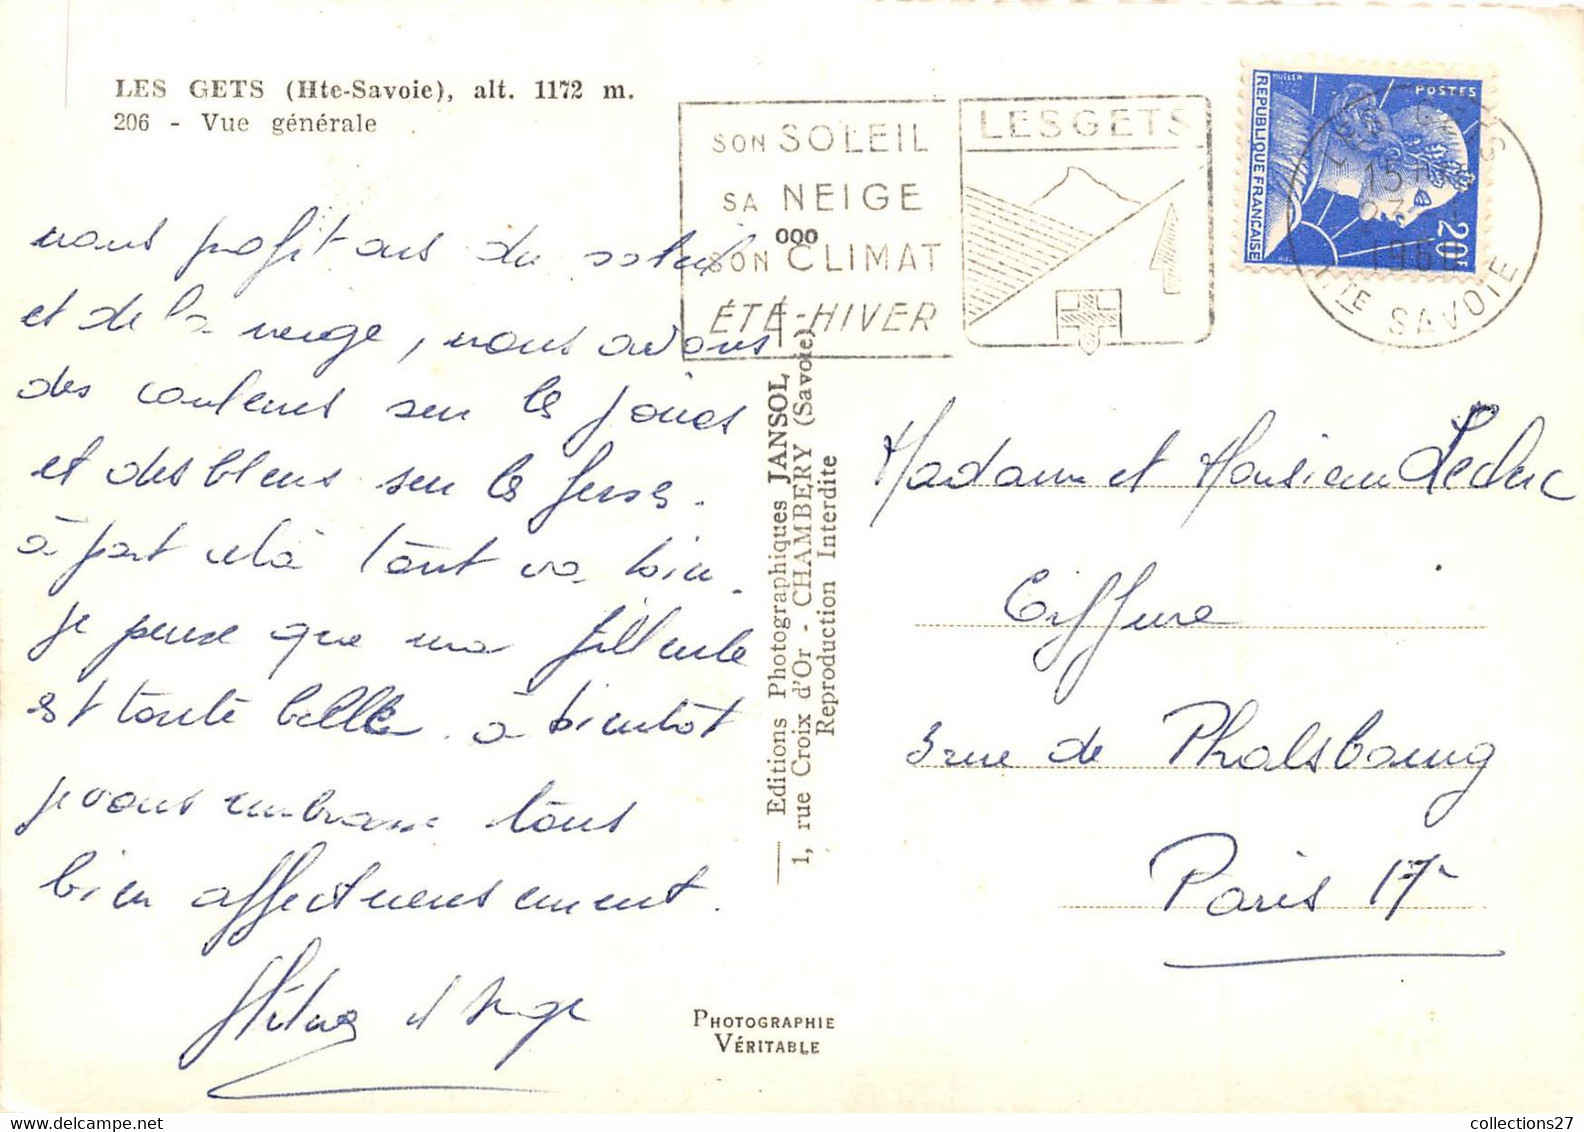 LES GETS (Hte-Savoie), alt. 1172 m.
206 - Vue générale
SON SOLEIL
SA NEIGE
SON CLIMAT
ÉTÉ-HIVER
000
LES GETS
MULLER
POSTES
REPUBLIQUE FRANÇAISE
20F
LES GETS
15 H
1960
HTE SAVOIE
nous profitons du soleil
et de la neige, nous avons
des couleurs sur les joues
et des bleus sur les fesses.
à part cela tout va bien.
je pense que ma filleule
est toute belle. à bientôt
je vous embrasse tous
bien affectueusement.
et Serge
Editions Photographiques JANSOL
1, rue Croix d'Or - CHAMBERY (Savoie)
Reproduction Interdite
Madame et Monsieur Leduc
Coiffure
3 rue de Phalsbourg
Paris 17e
PHOTOGRAPHIE
VÉRITABLE
collections27